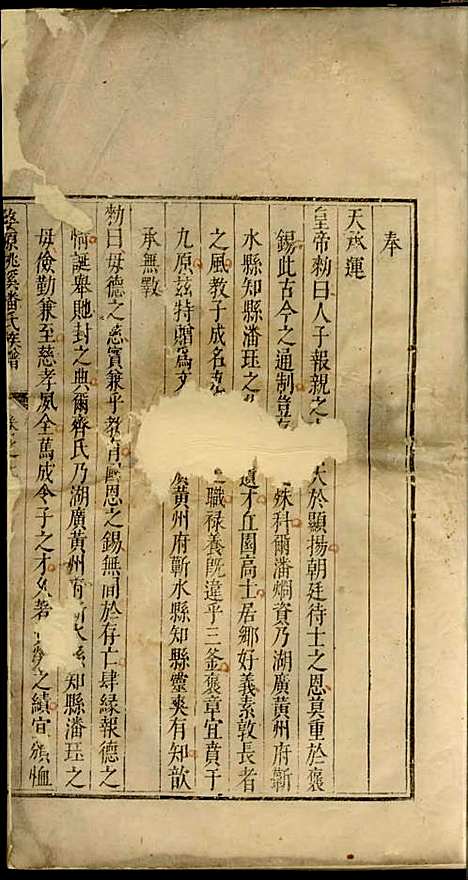 奉
天承運
皇帝勑曰人子報親之大於顯揚朝廷待士之恩莫重於褒
錫此古今之通制豈殊科爾潘烱資乃湖廣黃州府蘄
水縣知縣潘珏之才丘園高士居鄉好義素敦長者
之風教子成名職祿養既違乎三釜褒章宜賁于
九原兹特贈爲文黃州府蘄水縣知縣靈爽有知歆
承無斁
勑曰母德之慈實兼乎教育恩之錫無間於存亡肆緣報德之
情誕舉貤封之典爾齊氏乃湖廣黃州知縣潘珏之
母儉勤兼至慈孝夙全萬成令子之才久著之績宜頒恤
婺源桃溪潘氏族譜